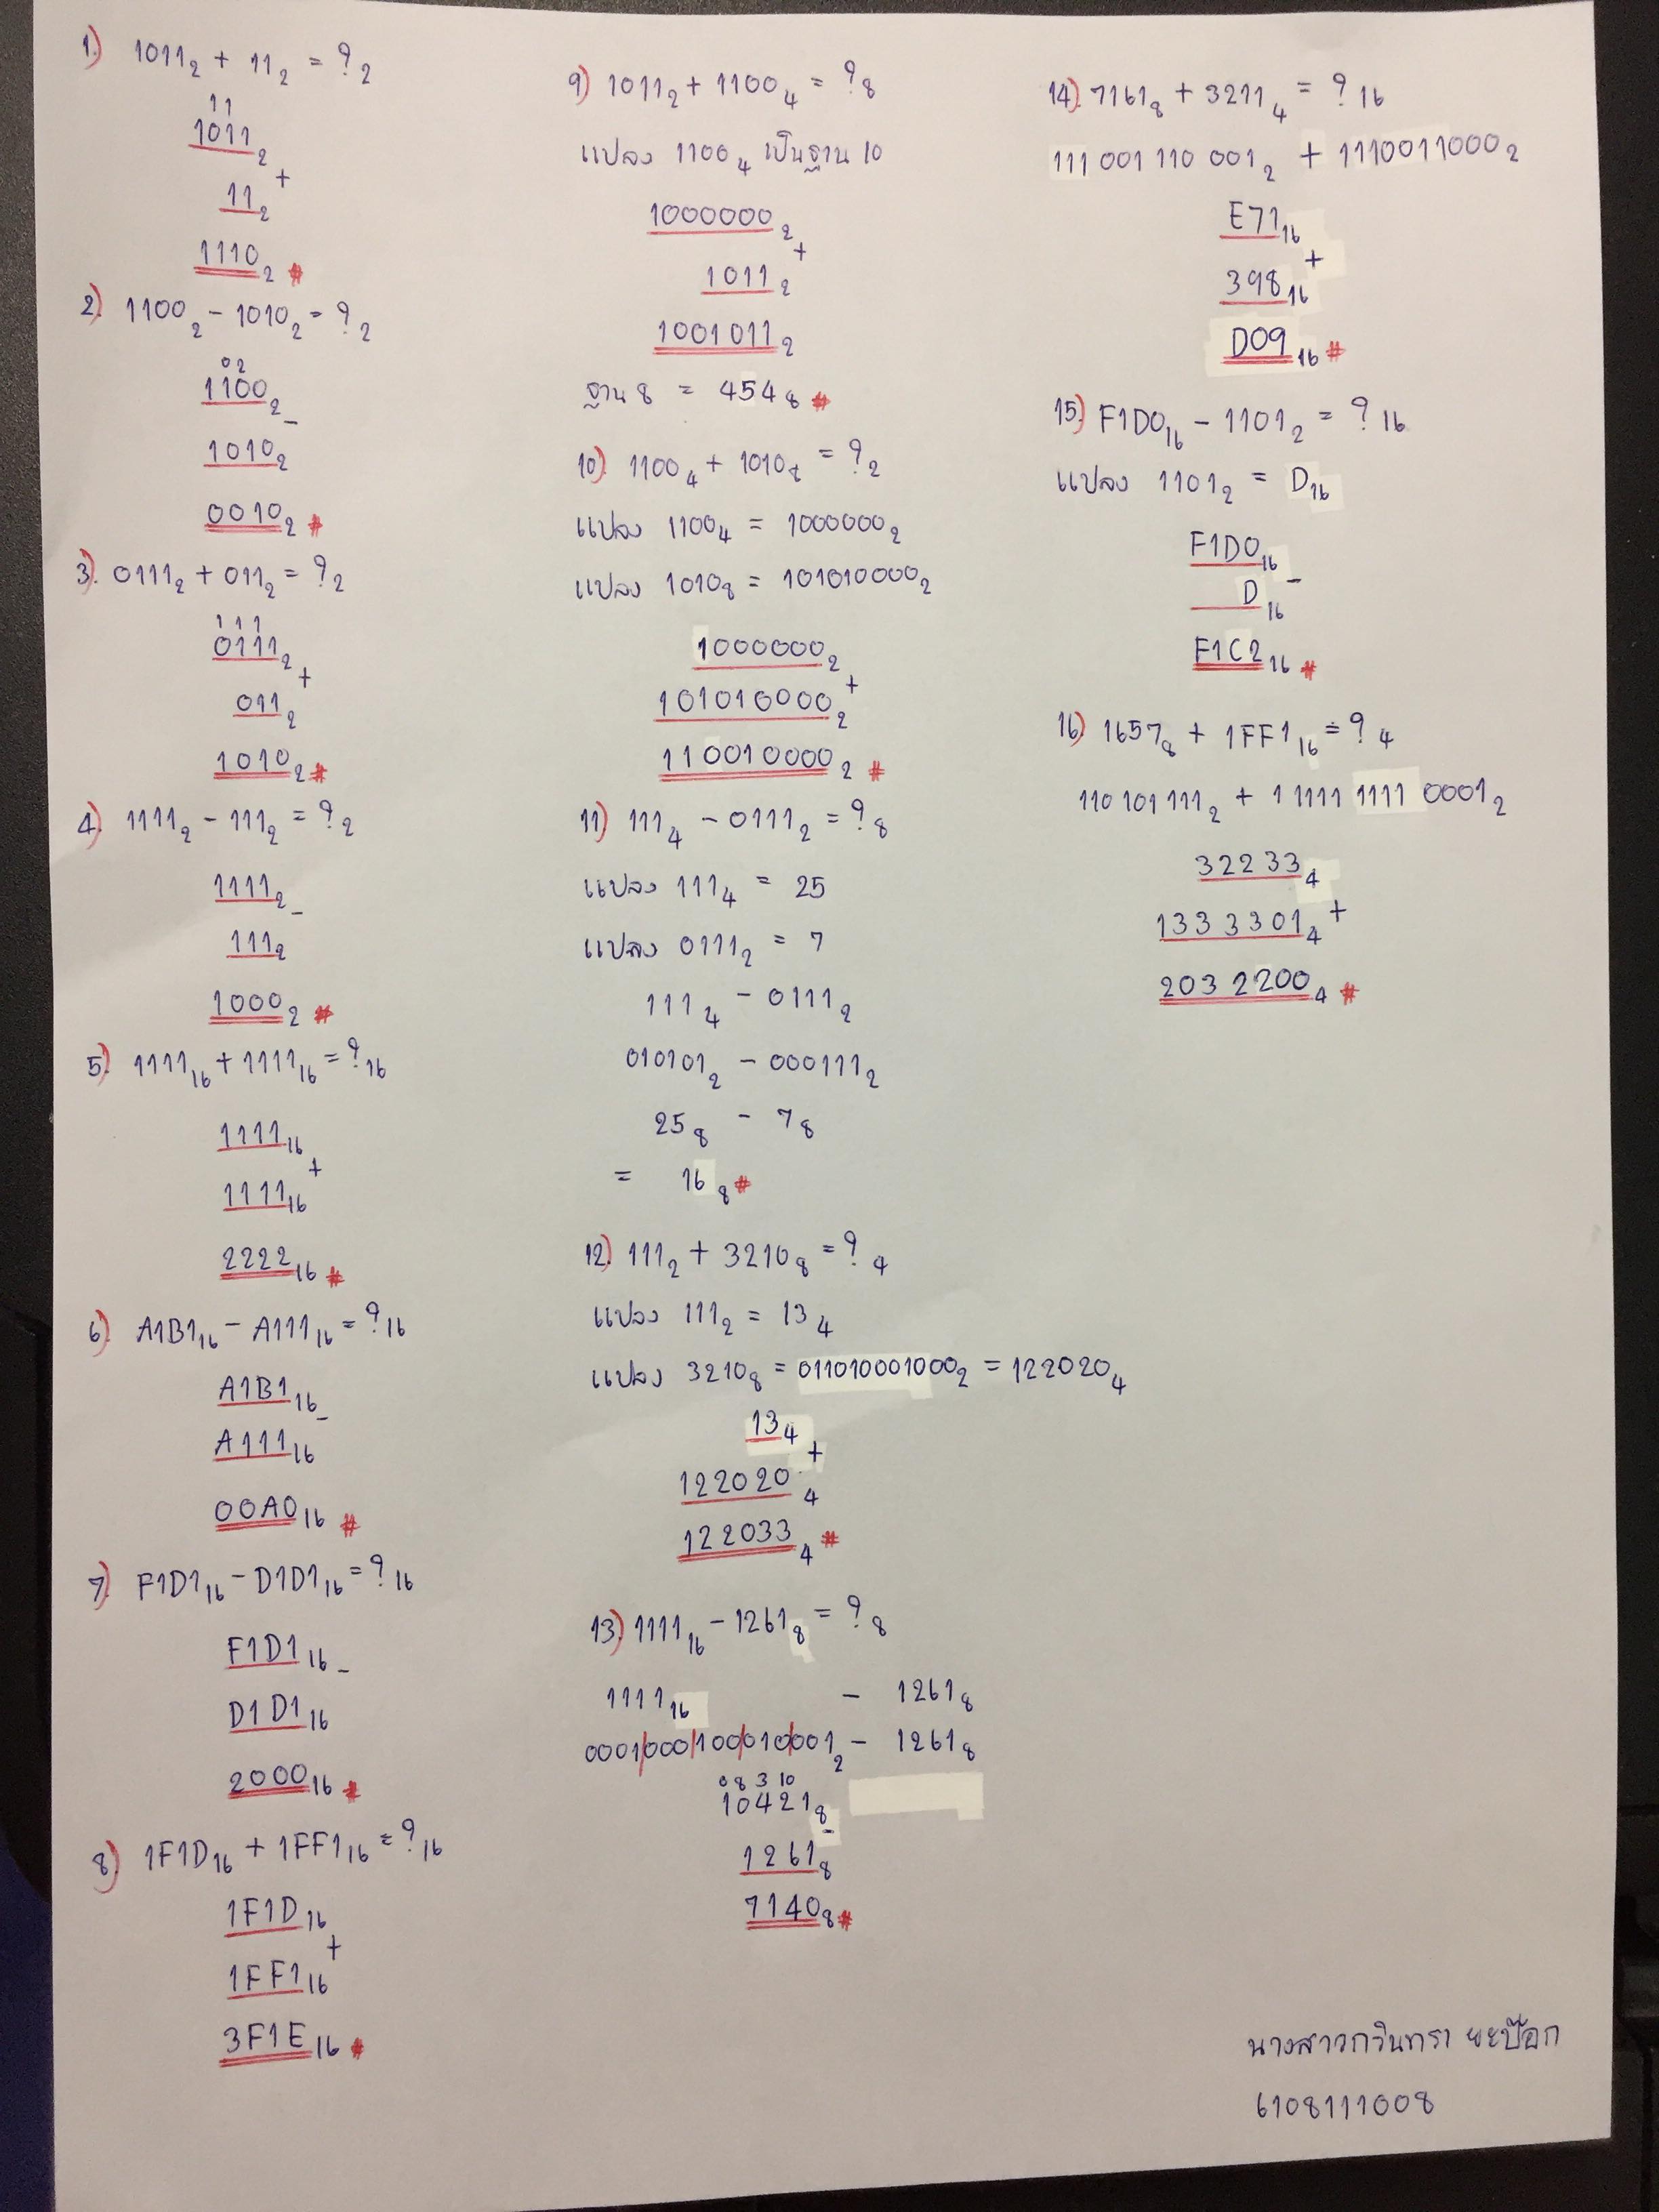 1) 1011₂ + 11₂ = ?₂
11
1011₂
+
11₂
1110₂ #
2) 1100₂ - 1010₂ = ?₂
02
1100₂
-
1010₂
0010₂ #
3) 0111₂ + 011₂ = ?₂
111
0111₂
+
011₂
1010₂ #
4) 1111₂ - 111₂ = ?₂
1111₂
-
111₂
1000₂ #
5) 1111₁₆ + 1111₁₆ = ?₁₆
1111₁₆
+
1111₁₆
2222₁₆ #
6) A1B1₁₆ - A111₁₆ = ?₁₆
A1B1₁₆
-
A111₁₆
00A0₁₆ #
7) F1D1₁₆ - D1D1₁₆ = ?₁₆
F1D1₁₆ -
D1D1₁₆
2000₁₆ #
8) 1F1D₁₆ + 1FF1₁₆ = ?₁₆
1F1D₁₆
+
1FF1₁₆
3F1E₁₆ #
9) 1011₂ + 1100₄ = ?₈
แปลง 1100₄ เป็นฐาน 10
1000000₂
+
1011₂
1001011₂
ฐาน 8 = 454₈ #
10) 1100₄ + 1010₈ = ?₂
แปลง 1100₄ = 1000000₂
แปลง 1010₈ = 101010000₂
1000000₂
+
101010000₂
110010000₂ #
11) 111₄ - 0111₂ = ?₈
แปลง 111₄ = 25
แปลง 0111₂ = 7
111₄ - 0111₂
010101₂ - 000111₂
25₈ - 7₈
= 16₈ #
12) 111₂ + 3210₈ = ?₄
แปลง 111₂ = 13₄
แปลง 3210₈ = 011010001000₂ = 122020₄
13₄
+
122020₄
122033₄ #
13) 1111₁₆ - 1261₈ = ?₈
1111₁₆ - 1261₈
0001/000/100/010/001₂ - 1261₈
0 8 3 10
10421₈
-
1261₈
7140₈ #
14) 7161₈ + 3211₄ = ?₁₆
111 001 110 001₂ + 1110011000₂
E71₁₆
+
398₁₆
D09₁₆ #
15) F1D0₁₆ - 1101₂ = ?₁₆
แปลง 1101₂ = D₁₆
F1D0₁₆
-
D₁₆
F1C2₁₆ #
16) 1657₈ + 1FF1₁₆ = ?₄
110 101 111₂ + 1 1111 1111 0001₂
32233₄
+
1333301₄
2032200₄ #
นางสาวกวินทรา ยะป๊อก
6108111008